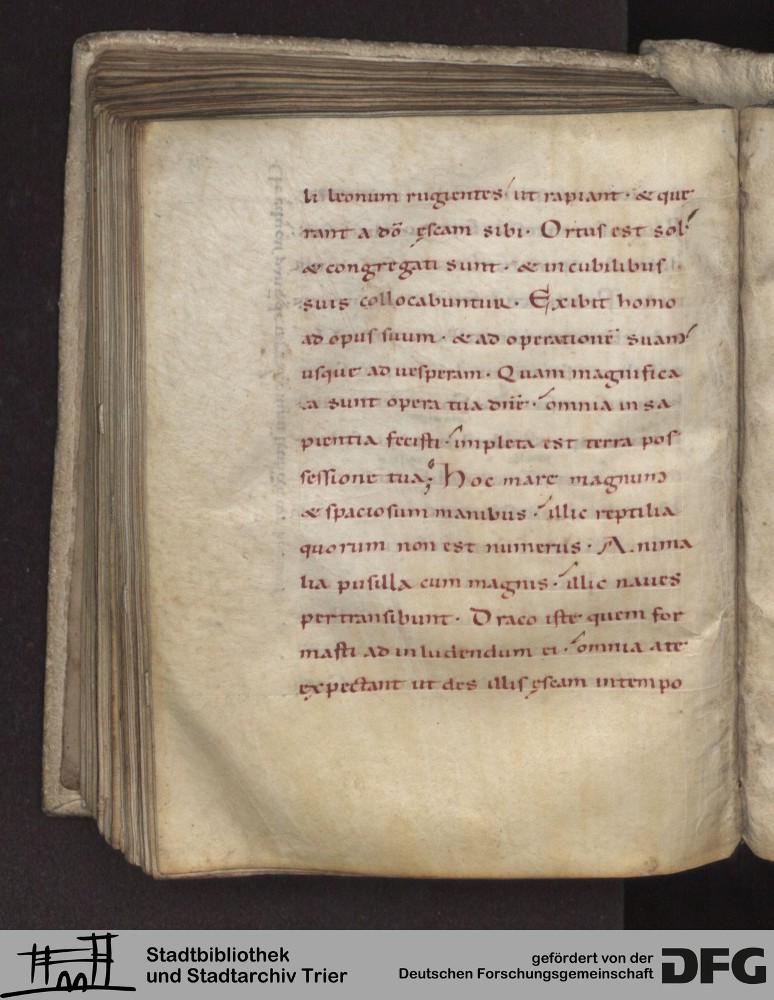 li leonum rugientes ut rapiant · & que
rant a dō escam sibi · Ortus est sol
& congregati sunt · & in cubilibus
suis collocabuntur · Exibit homo
ad opus suum · & ad operationē suam
usque ad uesperam · Quam magnifica
ta sunt opera tua dn̄e · omnia in sa
pientia fecisti · impleta est terra pos
sessione tua; Hoc mare magnum
& spaciosum manibus · illic reptilia
quorum non est numerus · Anima
lia pusilla cum magnis · illic naues
pertransibunt · Draco iste quem for
masti ad inludendum ei · omnia a te
expectant ut des illis ęscam in tempo
Stadtbibliothek
und Stadtarchiv Trier
gefördert von der
Deutschen Forschungsgemeinschaft
DFG